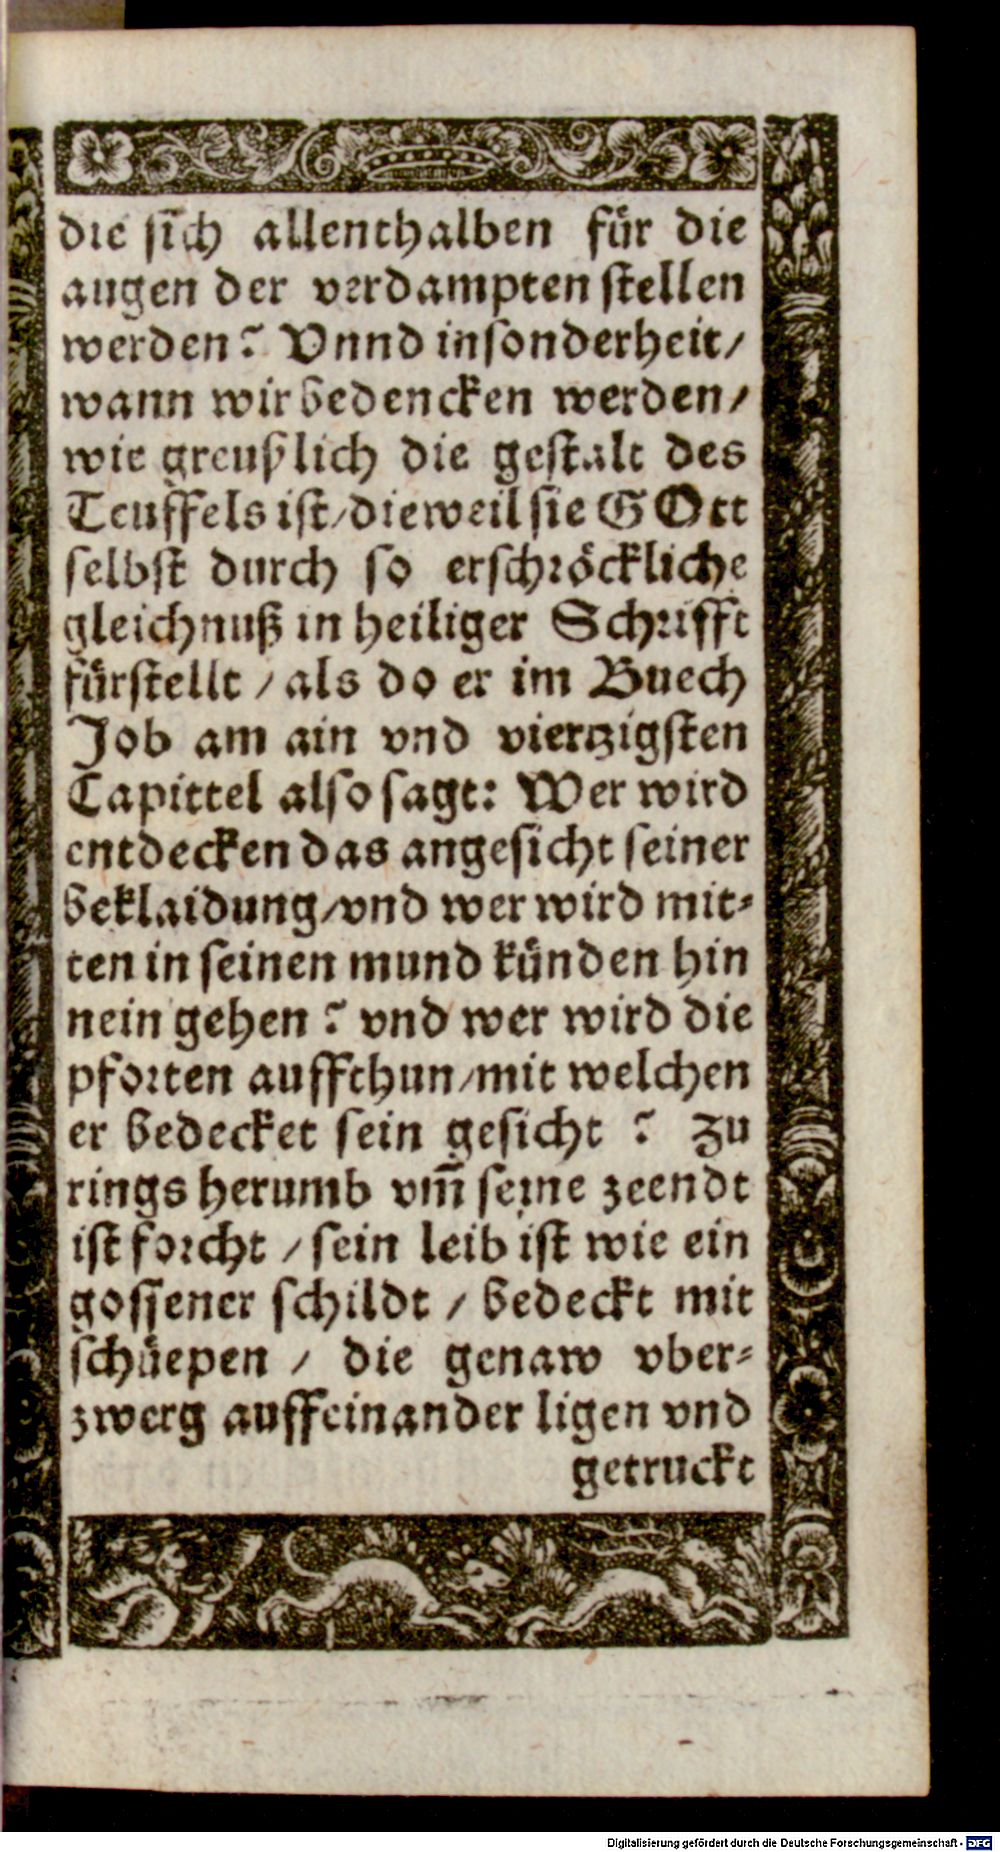 die sich allenthalben für die
augen der verdampten stellen
werden? Vnnd insonderheit/
wann wir bedencken werden/
wie greußlich die gestalt des
Teuffels ist/dieweil sie GOtt
selbst durch so erschröckliche
gleichnuß in heiliger Schrifft
fürstellt / als do er im Buech
Job am ain vnd viertzigsten
Capittel also sagt: Wer wird
entdecken das angesicht seiner
beklaidung/vnd wer wird mit-
ten in seinen mund künden hin
nein gehen? vnd wer wird die
pforten auffthun/mit welchen
er bedecket sein gesicht? Zu
rings herumb vm̄ seine zeendt
ist forcht / sein leib ist wie ein
gossener schildt / bedeckt mit
schüepen / die genaw vber-
zwerg auffeinander ligen vnd
getruckt
Digitalisierung gefördert durch die Deutsche Forschungsgemeinschaft - DFG